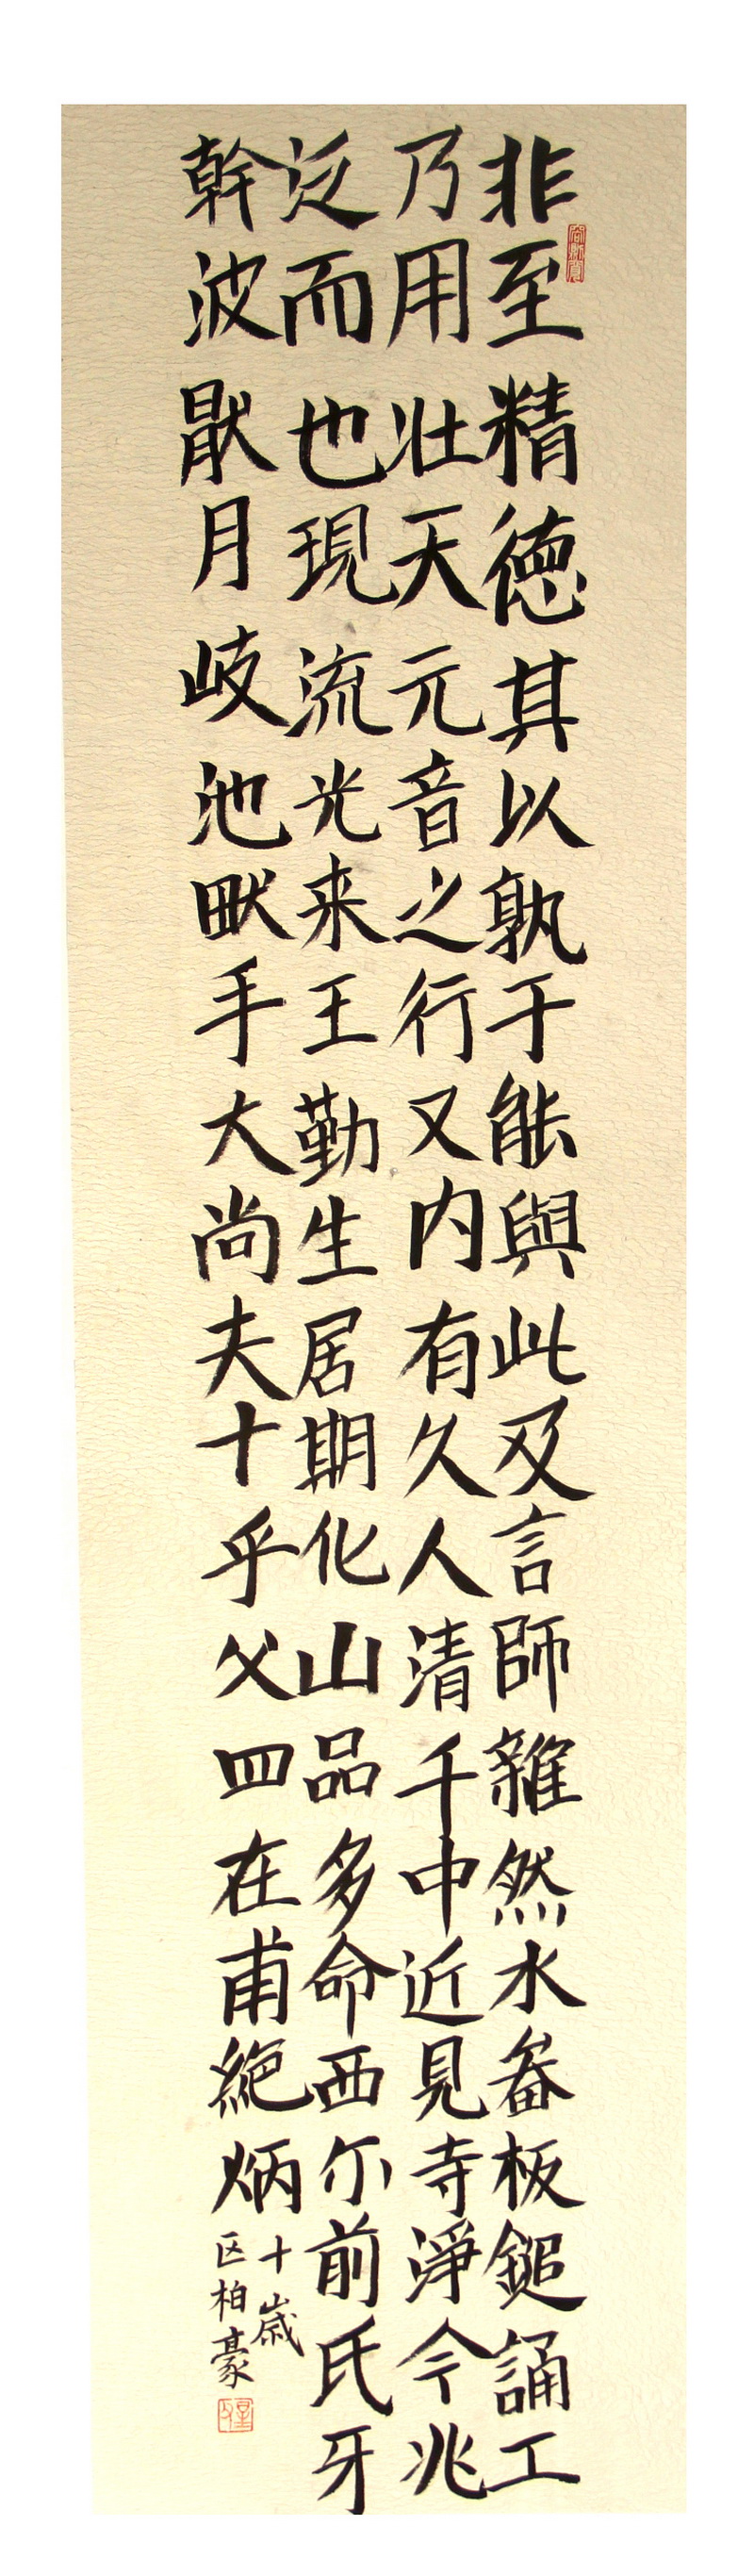 非至精德其以孰于能與此及言師雜然水畚板鎚誦工
乃用壮天元音之行又内有久人清千中近見寺淨今兆
泛而也現流光来王勤生居期化山品多命西尓前氏牙
幹波猒月岐池畎手大尚夫十乎父四在甫絶炳
十歳
区柏豪